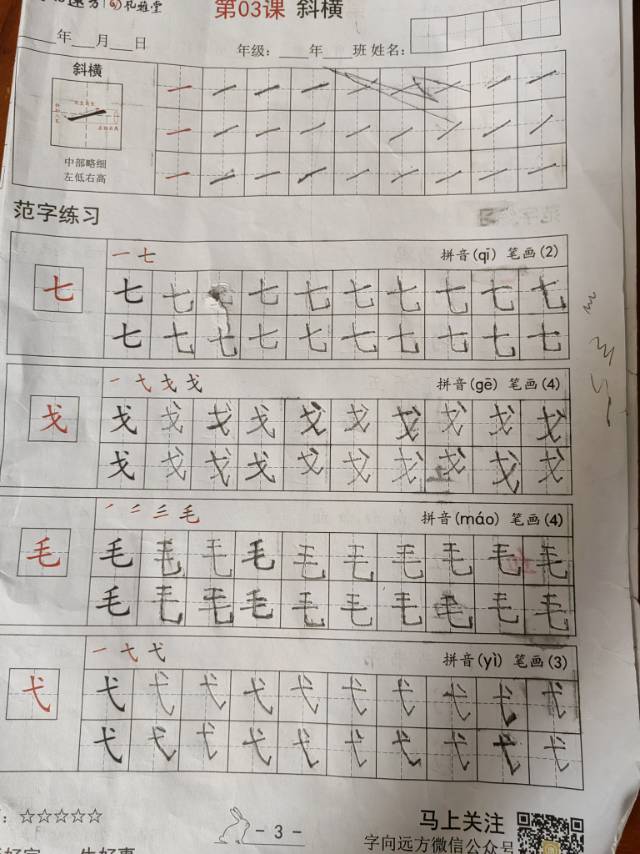 第03课 斜横
年 月 日
年级： 年 班 姓名：
斜横
中部略细
左低右高
范字练习
一 七 拼音(qī) 笔画(2)
七 七 七 七 七 七 七 七 七 七 七
七 七 七 七 七 七 七 七 七 七
拼音(gē) 笔画(4)
戈 戈 戈 戈 戈 戈 戈 戈 戈 戈 戈
戈 戈 戈 戈 戈 戈 戈 戈 戈 戈
毛 拼音(máo) 笔画(4)
毛 毛 毛 毛 毛 毛 毛 毛 毛 毛 毛
毛 毛 毛 毛 毛 毛 毛 毛 毛 毛
一 弋 弋 拼音(yì) 笔画(3)
弋 弋 弋 弋 弋 弋 弋 弋 弋 弋 弋
弋 弋 弋 弋 弋 弋 弋 弋 弋 弋
：☆☆☆☆☆
- 3 -
马上关注
字向远方微信公众号